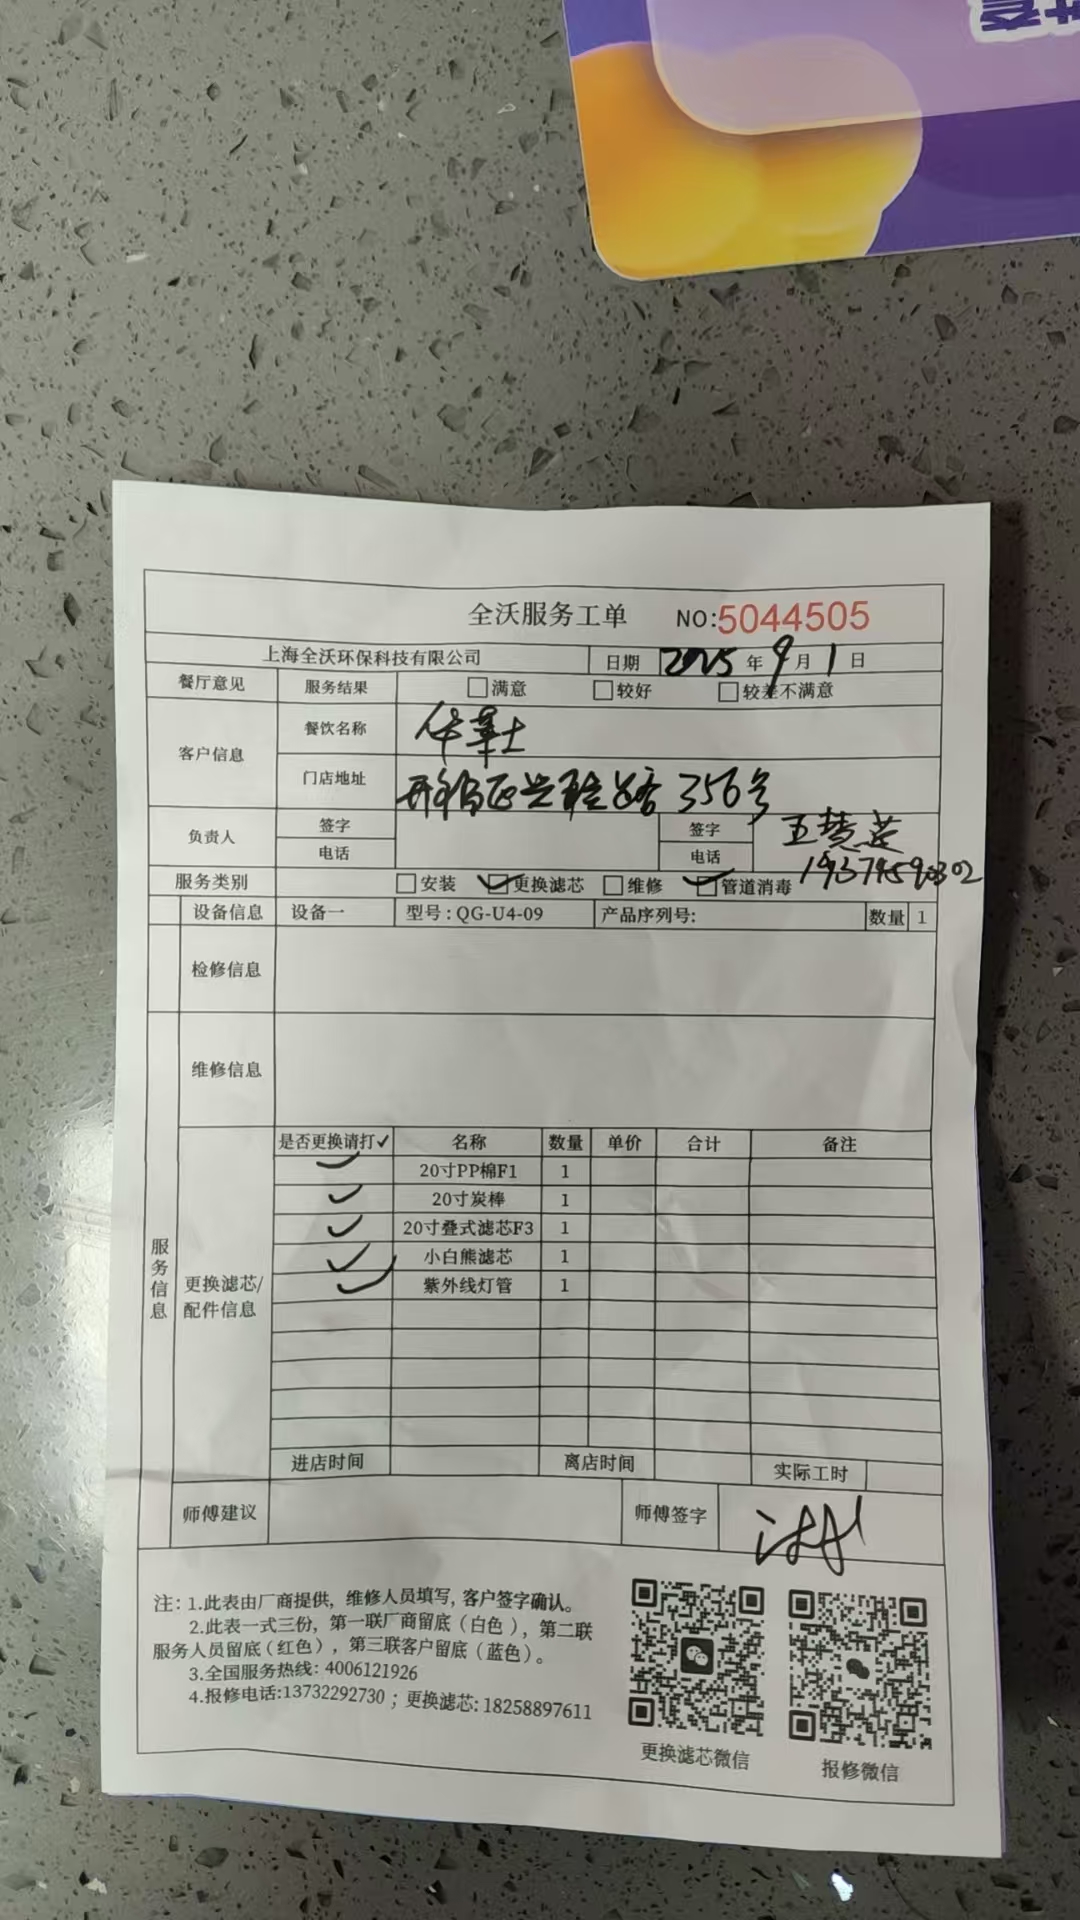 全沃服务工单 NO:5044505
上海全沃环保科技有限公司 日期 2025 年 9 月 1 日
餐厅意见 服务结果 满意 较好 较差不满意
客户信息 餐饮名称 华莱士
门店地址 路 356号
负责人 签字 签字
电话 电话
服务类别 安装 更换滤芯 维修 管道消毒
设备信息 设备一 型号：QG-U4-09 产品序列号: 数量 1
检修信息
维修信息
服务信息
更换滤芯/配件信息
是否更换请打✓ 名称 数量 单价 合计 备注
✓ 20寸PP棉F1 1
✓ 20寸炭棒 1
✓ 20寸叠式滤芯F3 1
✓ 小白熊滤芯 1
✓ 紫外线灯管 1
进店时间 离店时间 实际工时
师傅建议 师傅签字
注：1.此表由厂商提供，维修人员填写，客户签字确认。
2.此表一式三份，第一联厂商留底（白色），第二联
服务人员留底（红色），第三联客户留底（蓝色）。
3.全国服务热线：4006121926
4.报修电话:13732292730；更换滤芯: 18258897611
更换滤芯微信 报修微信